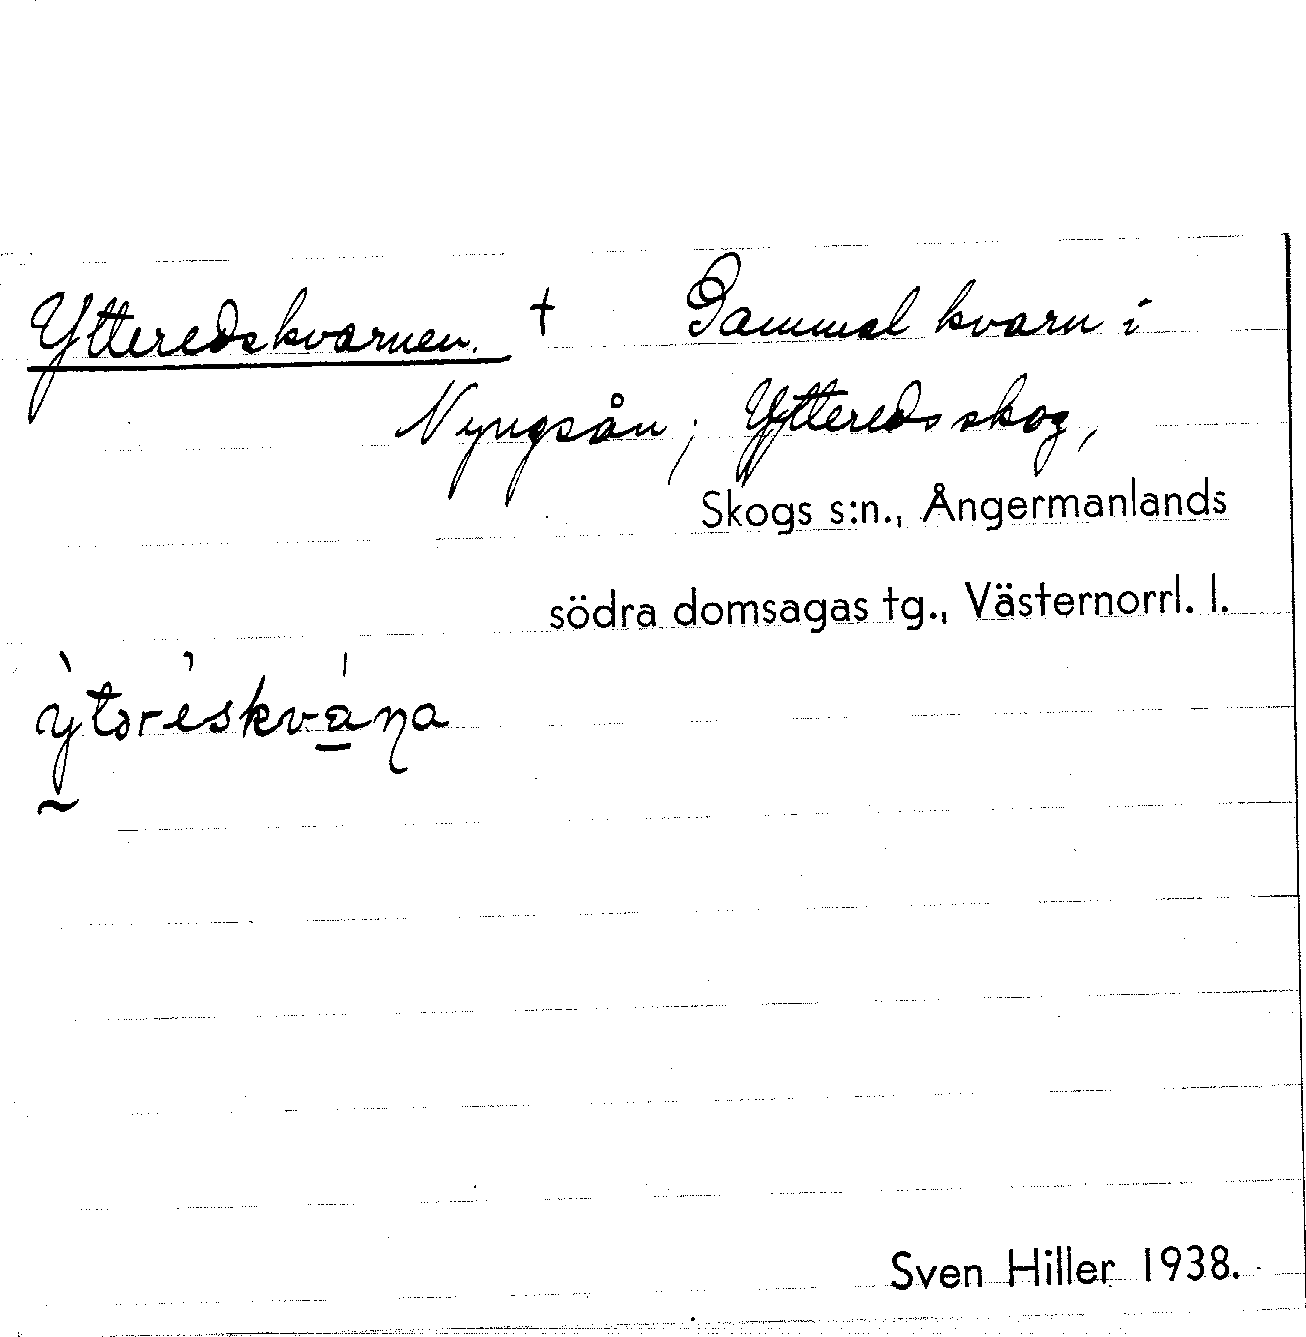 Ytteredskvarnen. † Gammal kvarn i
Nyngsån; Ytteredsskog,
Skogs s:n., Ångermanlands
södra domsagas tg., Västernorrl. l.
Sven Hiller 1938.